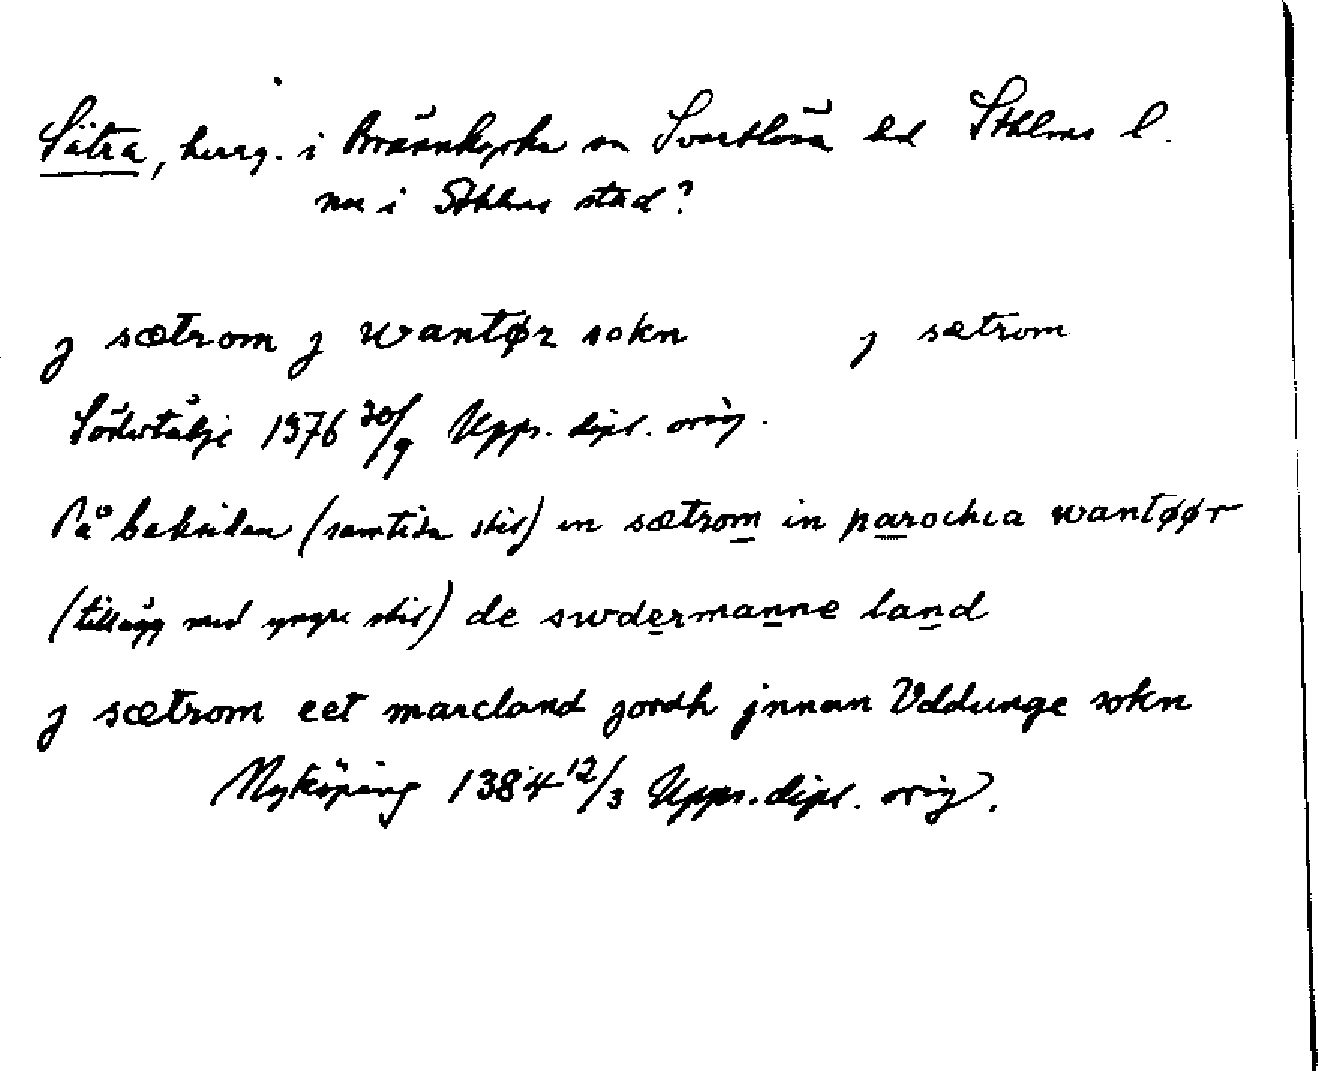 Sätra, herrg. i Brännkyrka sn Svartlösa hd Sthlms l.
nu i Sthlms stad?
j sætrom j wantør sokn j sætrom
Södertälje 1376 30/9 Upps. dipl. orig.
På baksidan (samtida stil) in sætrom in parochia wantøør
(tillägg med yngre stil) de swdermanne land
j sætrom eet marcland jordh jnnan Vddunge sokn
Nyköping 1384 12/3 Upps. dipl. orig.